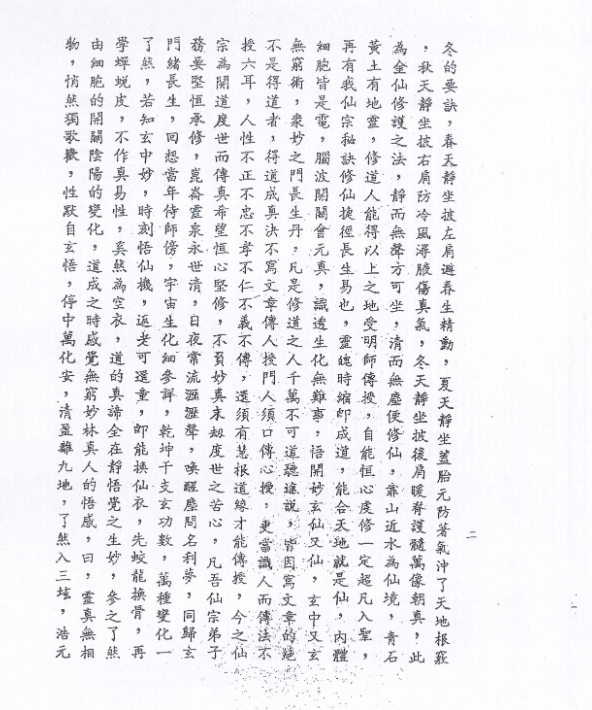 冬的要訣，春天靜坐披左肩避春生精動，夏天靜坐蓋胎元防著氣沖了天地根竅
，秋天靜坐披右肩防冷風浸腋傷真氣，冬天靜坐披後肩暖脊護髓萬像朝真，此
為金仙修護之法，靜而無聲方可坐，清而無塵便修仙，靠山近水為仙境，青石
黃土有地靈，修道人能得以上之地受明師傳授，自能恒心虔修一定超凡入聖，
再有我仙宗秘訣修仙捷徑長生易也，靈魄時縮即成道，能合天地就是仙，內體
細胞皆是電，腦波開闔會元真，識透生化無難事，悟開妙玄仙又仙，玄中又玄
無窮術，衆妙之門長生丹，凡是修道之人千萬不可道聽途說，皆因寫文章的絕
不是得道者，得道成真決不寫文章傳人授門人須口傳心授，更當識人而傳法不
授六耳，人性不正不忠不孝不仁不義不傳，還須有慧根道緣才能傳授，今之仙
宗為開道度世而傳真希望恒心堅修，不負妙真末劫度世之苦心，凡吾仙宗弟子
務要堅恒承修，崑崙靈泉永世清，日夜常流漚漚聲，喚醒塵間名利夢，同歸玄
門緒長生，回想當年侍師傍，宇宙生化細參詳，乾坤干支玄功數，萬種變化一
了然，若知玄中妙，時刻悟仙機，返老可還童，即能換仙衣，先蛟龍換骨，再
學蟬蛻皮，不作真易性，奚然為空衣，道的真諦全在靜悟覺之生妙，參之了然
由細胞的開闔陰陽的變化，道成之時感覺無窮妙林真人的悟感，曰，靈真無相
物，悄然獨歌歡，性默自玄悟，停中萬化安，清盈離九地，了然入三垓，浩元
二